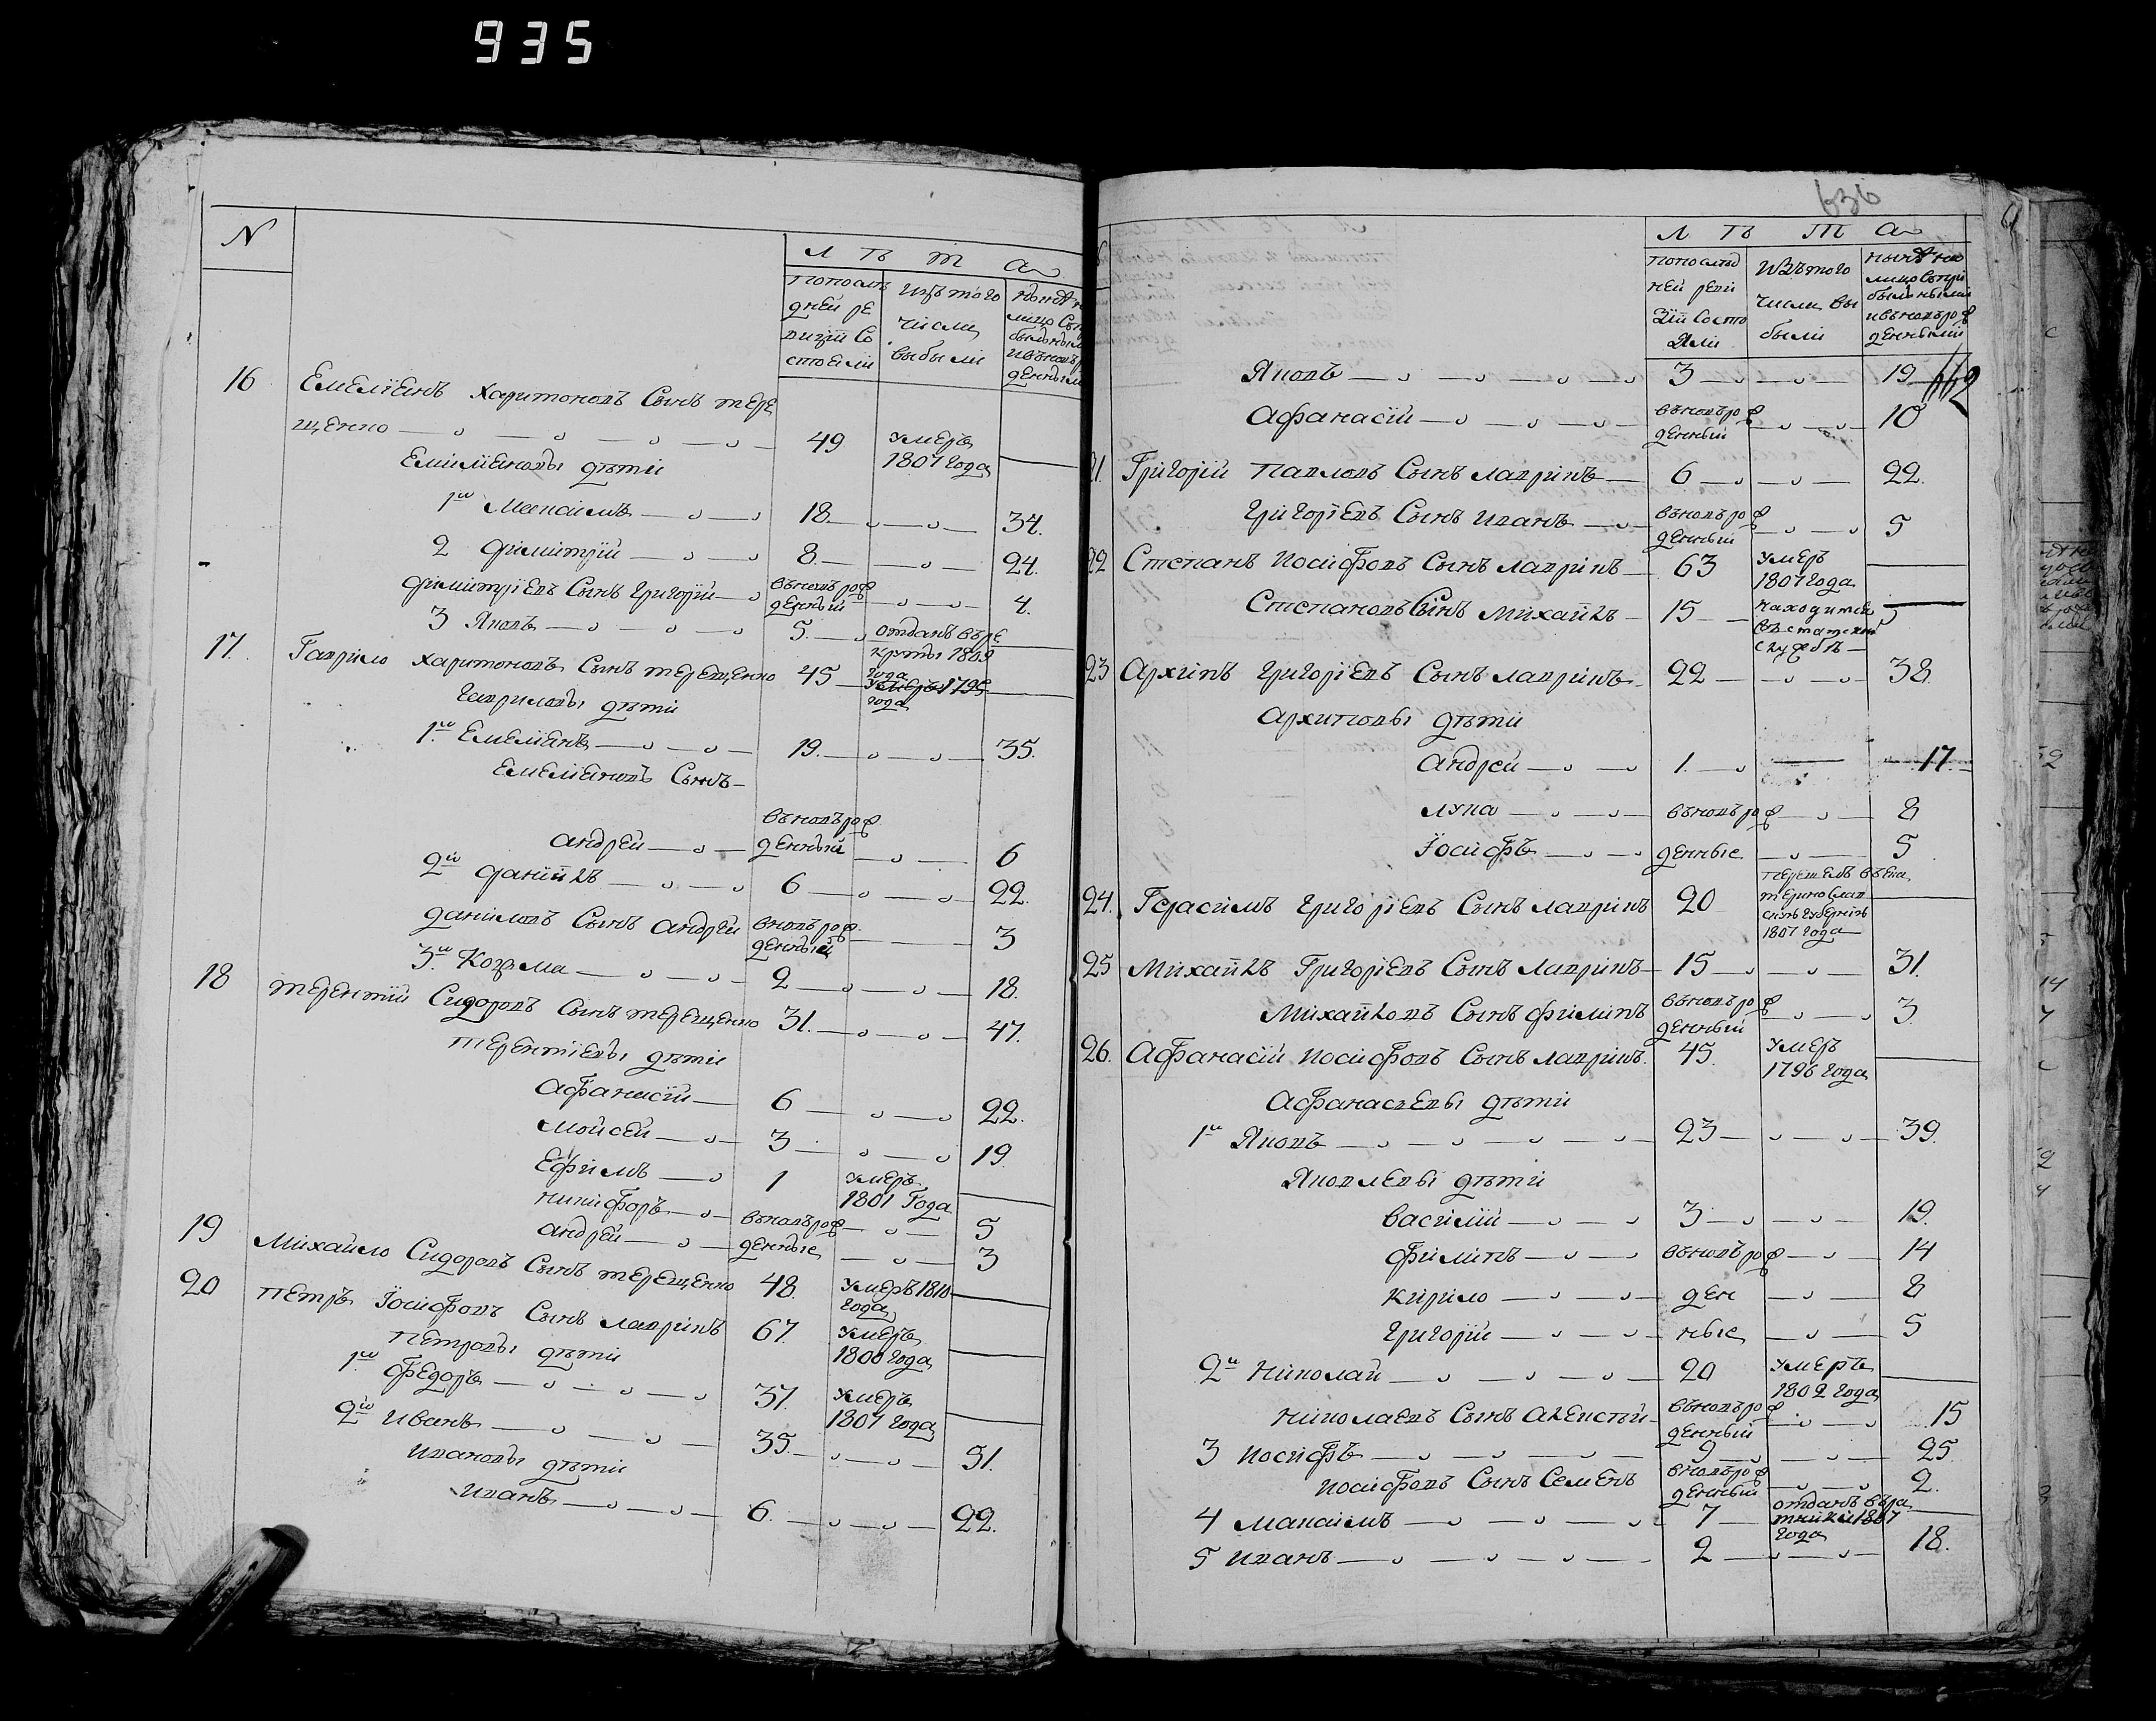 935
N
Л ѣ т а
По послѣ
дней ре
визіи со
стояли
Изъ того
числа
выбыли
16 Емеліянъ Харитоновъ Сынъ Тере
щенко 49 умеръ
1801 года
Емиліяновы дѣти
1й Максимъ 18 34.
2 Димитрій 8 24.
Димитріевъ Сынъ Григорій вновь рож
денный 4.
3 Яковъ 5 отданъ въ ре
круты 1809
года
17. Гаврило Харитоновъ Сынъ Терещенко 45 умеръ 1796
года
Гавриловы дѣти
1й Емеліянъ 19. 35.
Емеліяновъ Сынъ
Андрей вновь рож
денный 6
2й Даніилъ 6 22.
Даниловъ Сынъ Андрей вновь рож
денный 3
3й Козма 2 18.
18 Терентій Сидоровъ Сынъ Терещенко 31. 47.
Терентіевы дѣти
Афанасій 6 22.
Мойсей 3 19.
Ефимъ 1 умеръ
1801 Года
Никифоръ вновь рож 5
Андрей денные 3
19 Михайло Сидоровъ Сынъ Терещенко 48. умеръ 1810
года
20 Петръ Іосифовъ Сынъ Лавринъ 67. умеръ
1800 года
Петровы дѣти
1й Федоръ 37. умеръ
1801 года
2й Иванъ 35. 51.
Ивановы дѣти
Иванъ 6. 22.
636
Л ѣ т а
По послѣд
ней реви
зіи состо
яли
Изъ того
числа вы
были
нынѣ на
лицо съ при
былыми
и вновь рож
денными
Яковъ 3 19
662
Афанасій вновь рож
денный 10
21. Григорій Павловъ Сынъ Лавринъ 6 22.
Григоріевъ Сынъ Иванъ вновь рож
денный 5
22 Степанъ Иосифовъ Сынъ Лавринъ 63 умеръ
1801 года
Степановъ Сынъ Михаилъ 15 находится
въ статской
службѣ
23 Архипъ Григоріевъ Сынъ Лавринъ 22 38.
Архиповы дѣти
Андрей 1. 17.
Лука вновь рож 8
Іосифъ денные 5
24. Герасимъ Григоріевъ Сынъ Лавринъ 20 перешелъ въ Ека
теринослав
скую губернію
1801 года
25 Михаилъ Григоріевъ Сынъ Лавринъ 15 31.
Михаиловъ Сынъ Филипъ вновь рож
денный 3.
26. Афанасій Иосифовъ Сынъ Лавринъ 45. умеръ
1796 года
Афанасіевы дѣти
1й Яковъ 23 39.
Яковлевы дѣти
Василій 3 19.
Филипъ вновь рож 14
Кирило ден 8
Григорій ные 5
2й Николай 20 умеръ
1802 года
Николаевъ Сынъ Алексѣй вновь рож
денный 15
3 Иосифъ 9 25
Иосифовъ Сынъ Семенъ вновь рож
денный 2.
4 Максимъ 7 отданъ въ ра
тники 1807
года
5 Иванъ 2 18.